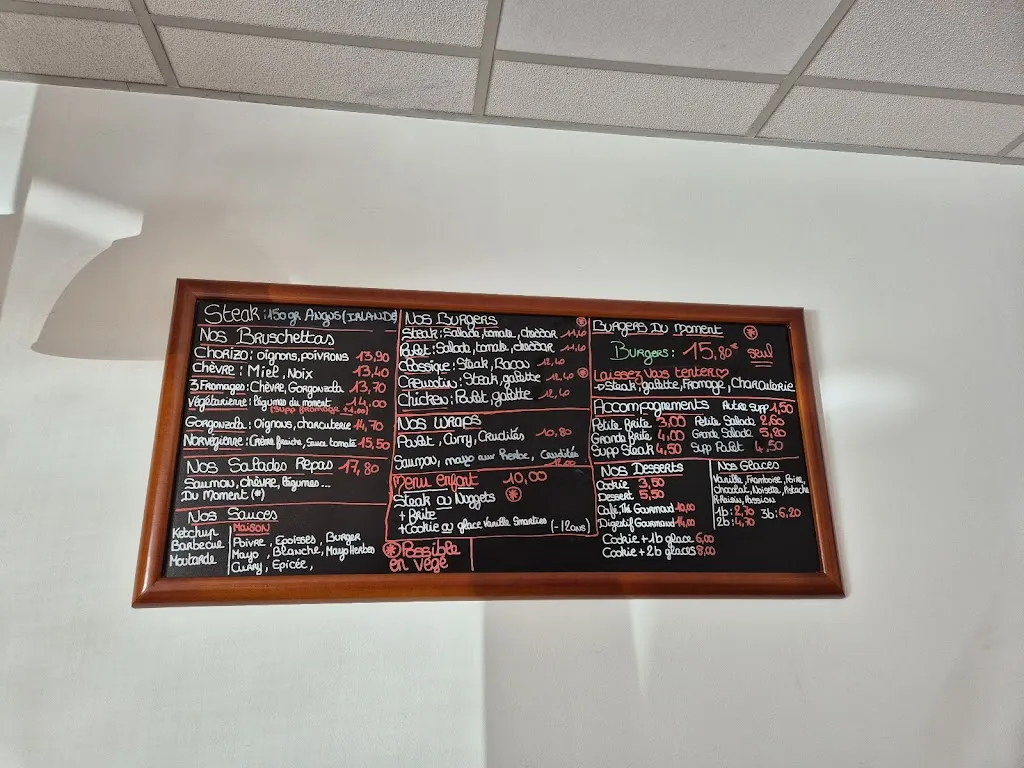 Steak : 150 gr Angus (IRLANDE)
Nos Bruschettas
Chorizo : oignons, poivrons 13,90
Chèvre : Miel, Noix 13,40
3 Fromages : Chèvre, Gorgonzola 13,70
Végétarienne : légumes du moment 14,00
(Supp Fromage +1,00)
Gorgonzola : Oignons, charcuterie 14,70
Norvégienne : Crème fraiche, Sauce tomate 15,50
Nos Salades Repas 17,80
Saumon, chèvre, légumes ...
Du Moment (*)
Nos Sauces
Ketchup
Barbecue
Moutarde
MAISON
Poivre, Epoisses, Burger
Mayo, Blanche, Mayo Herbes
Curry, Epicée,
Nos Burgers
Steak : Salade, tomate, cheddar 11,40
Poulet : Salade, tomate, cheddar 11,40
Classique : Steak, Bacon 12,40
Steak, galette 12,40
Chicken : Poulet, galette 12,40
Nos Wraps
Poulet, Curry, Crudités 10,80
Saumon, mayo aux herbes, Crudités 12,00
Menu enfant 10,00
Steak ou Nuggets
+ Frite
+ Cookie ou glace Vanille Smarties (-12ans)
Possible en végé
Burgers Du Moment
Burgers : 15,80€ seul
Laissez Vous tenter ♡
→ Steak, galette, Fromage, Charcuterie
Accompagnements Autre Supp 1,50
Petite Frite 3,00 Petite Salade 2,60
Grande Frite 4,00 Grande Salade 5,80
Supp Steak 4,50 Supp Poulet 4,50
Nos Desserts
Cookie 3,50
Dessert 5,50
Café, Thé Gourmand 10,00
Digestif Gourmand 14,00
Cookie + 1b glace 6,00
Cookie + 2b glaces 8,00
Nos Glaces
Vanille, Framboise, Poire,
Chocolat, Noisette, Pistache
R.Raisin, Passion
1b : 2,70 3b : 6,20
2b : 4,70